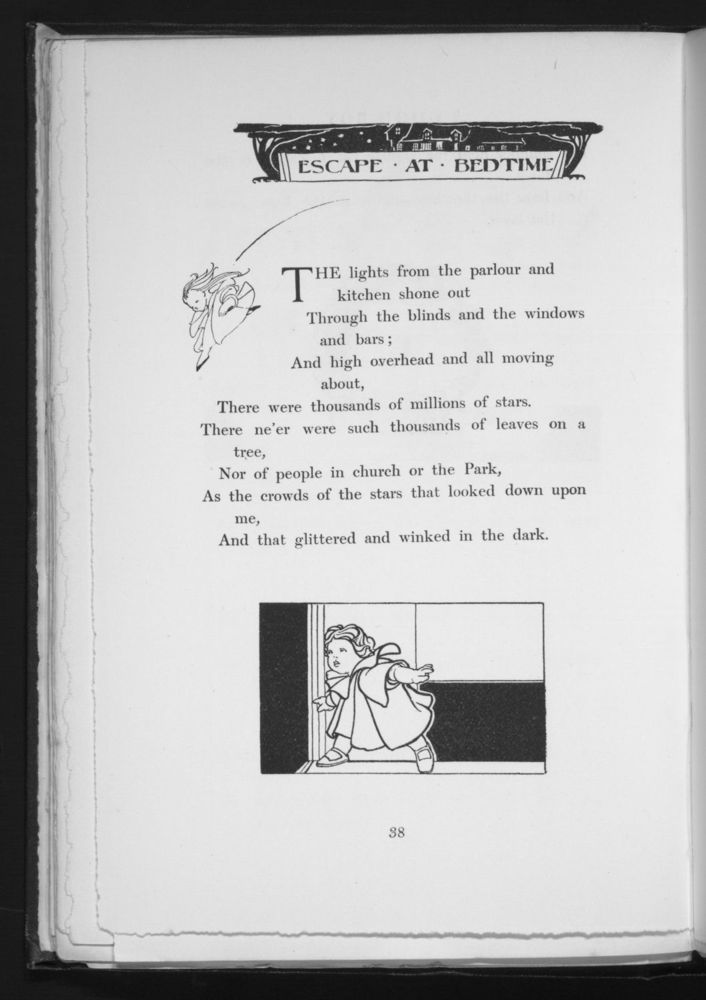 ESCAPE · AT · BEDTIME
THE lights from the parlour and
kitchen shone out
Through the blinds and the windows
and bars;
And high overhead and all moving
about,
There were thousands of millions of stars.
There ne'er were such thousands of leaves on a
tree,
Nor of people in church or the Park,
As the crowds of the stars that looked down upon
me,
And that glittered and winked in the dark.
38